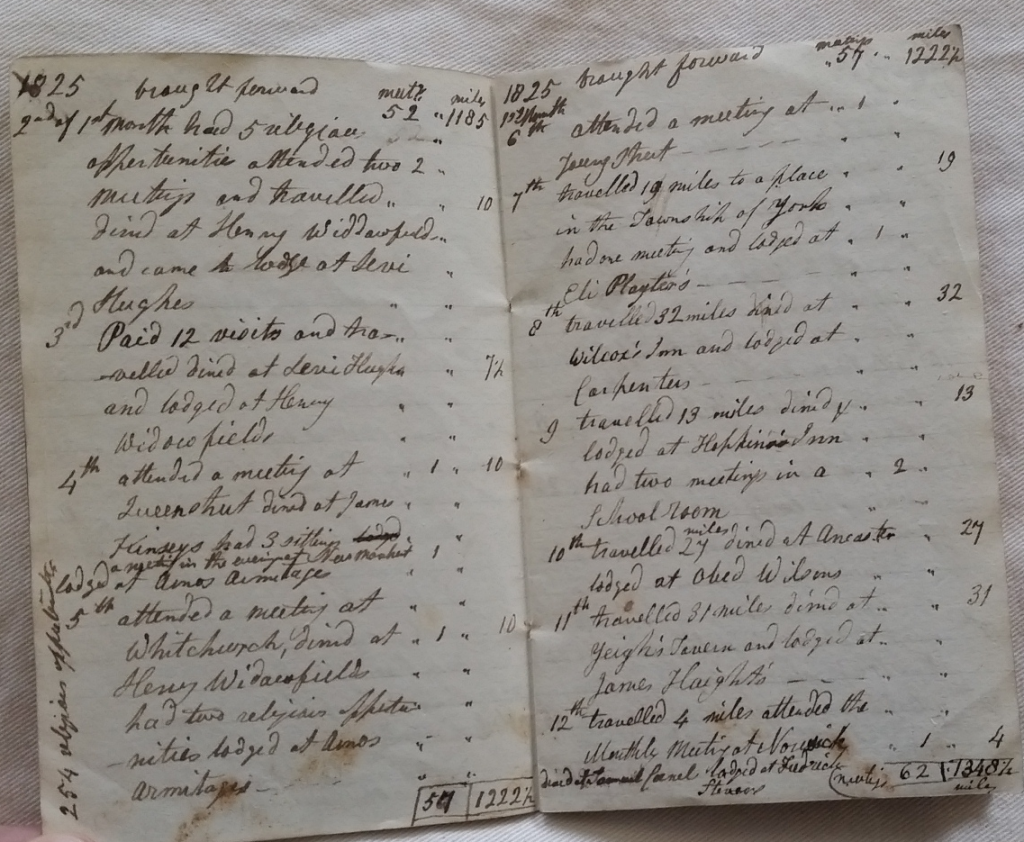 1825 brought forward meetgs 52 " miles 1185
2nd of 1st month had 5 religious
oppertunitie attended two 2 "
meetigs and travelled " " 10
dined at Henry Widdowfield "
and came to lodge at Levi "
Hughes " "
3rd Paid 12 visits and tra- "
-velled dined at Levi Hughs 7½
and lodged at Henry " "
Widowfields " "
4th attended a meetig at " 1 " 10
Queenstreet dined at James "
Kinseys had 3 sittings
a meetig in the evening at Newmarket 1 "
lodged at Amos Armitages " "
5th attended a meetig at "
Whitchurch, dined at " 1 " 10
Henry Widowfields " "
had two religious oppertu "
nities lodged at Amos " "
Armitages - " "
57 1222½
254 religious oppertunities
1825 brought forward meetigs " 57 " miles 1222½
1st Month
6th attended a meeting at " 1 "
Young Street - - - - "
7th travelled 19 miles to a place " " 19
in the Township of York " "
had one meetig and lodged at " 1 "
Eli Playter's - - - - " "
8th travelled 32 miles dined at " " 32
Wilcox's Inn and lodged at " "
Carpenters - - - - " "
9 travelled 13 miles dined & " " 13
lodged at Hopkins's Inn " "
had two meetings in a " 2 "
School room "
10th travelled 27 miles dined at Ancaster " 27
lodged at Obed Wilsons " "
11th travelled 31 miles dined at " " 31
Yeigh's Tavern and lodged at " "
James Haight's - - - - "
12th travelled 4 miles attended the " "
Monthly Meetig at Norwich " 1 " 4
dined at Cornel lodged at Fredrick
Stevers
meetigs 62 1348½
miles